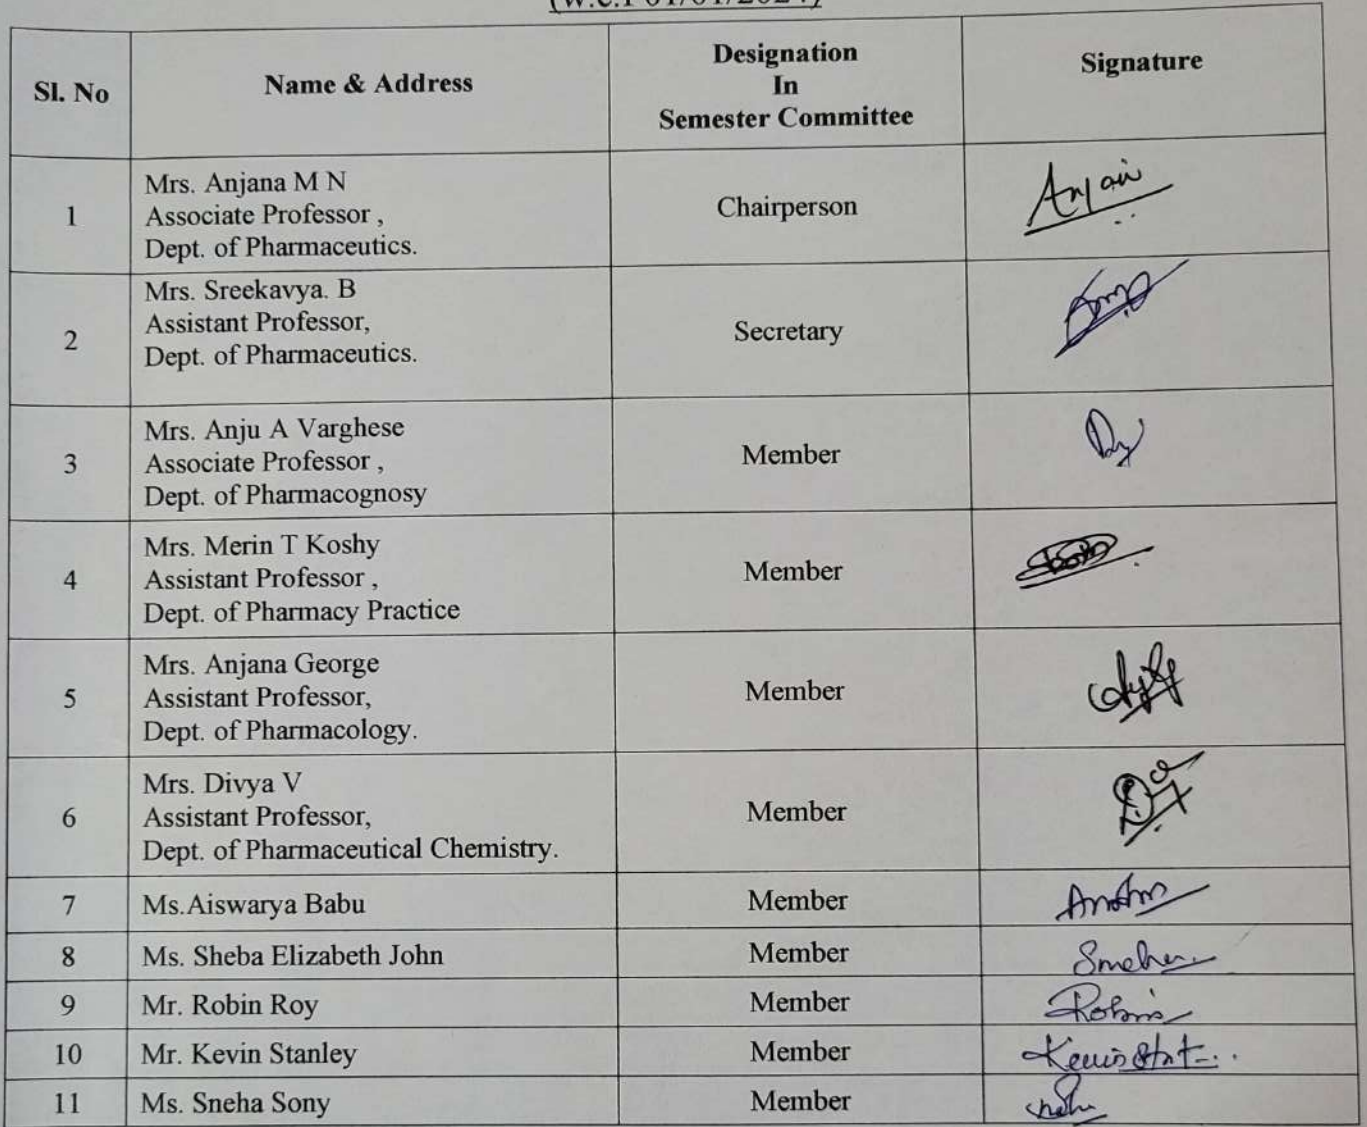 (w.e.f 01/01/2024)
Sl. No
Name & Address
Designation
In
Semester Committee
Signature
1
Mrs. Anjana M N
Associate Professor ,
Dept. of Pharmaceutics.
Chairperson
2
Mrs. Sreekavya. B
Assistant Professor,
Dept. of Pharmaceutics.
Secretary
3
Mrs. Anju A Varghese
Associate Professor ,
Dept. of Pharmacognosy
Member
4
Mrs. Merin T Koshy
Assistant Professor ,
Dept. of Pharmacy Practice
Member
5
Mrs. Anjana George
Assistant Professor,
Dept. of Pharmacology.
Member
6
Mrs. Divya V
Assistant Professor,
Dept. of Pharmaceutical Chemistry.
Member
7
Ms.Aiswarya Babu
Member
8
Ms. Sheba Elizabeth John
Member
9
Mr. Robin Roy
Member
Robin
10
Mr. Kevin Stanley
Member
Kevin
11
Ms. Sneha Sony
Member